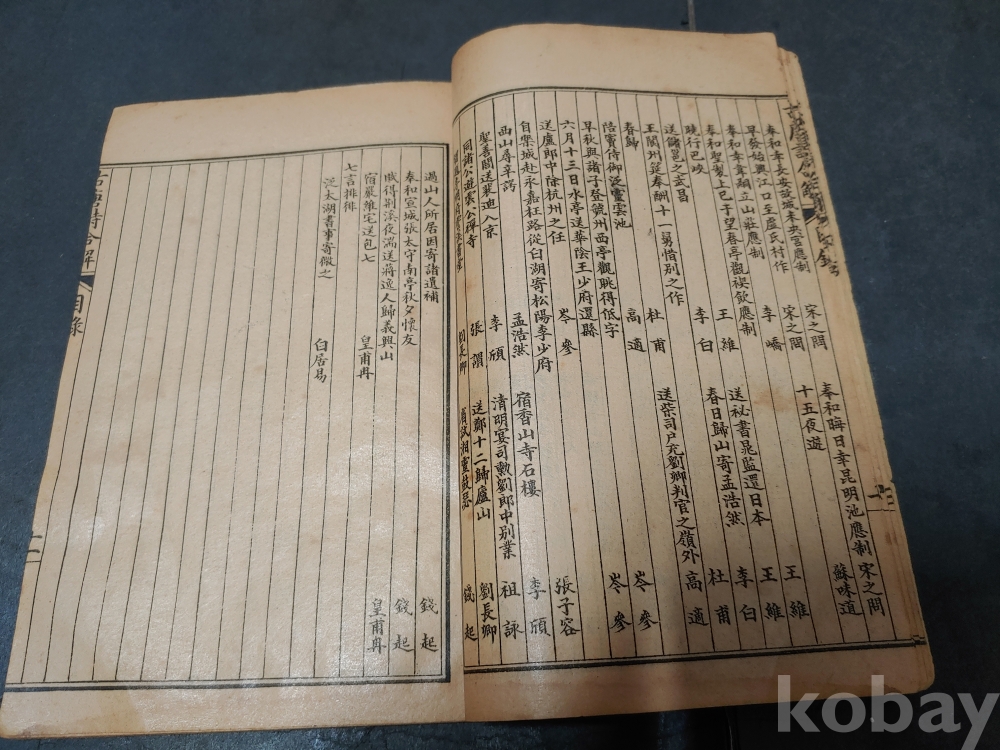 奉和幸長安故城未央宮應制 宋之問 奉和晦日幸昆明池應制 宋之問
早發始興江口至盧氏村作 宋之問 十五夜遊 蘇味道
奉和幸韋嗣立山莊應制 李嶠
奉和聖製上巳于望春亭觀禊飲應制 王維 送秘書晁監還日本 王維
曉行巴峽 王維 春日歸山寄孟浩然 李白
送儲邕之武昌 李白 杜甫
王閬州筵奉酬十一舅惜別之作 杜甫 送柴司戶充劉卿判官之嶺外 高適
春歸 杜甫
陪竇侍御泛靈雲池 高適 岑參
早秋與諸子登虢州西亭觀眺得低字 岑參
六月十三日水亭送華陰王少府還縣 岑參
送盧郎中除杭州之任 岑參 張子容
自樂城赴永嘉枉路從白湖寄松陽李少府
西山尋辛諤 孟浩然 宿香山寺石樓 李頎
聖善閣送裴迪入京 李頎 清明宴司勲劉郎中別業 祖詠
同諸公遊雲公禪寺 張謂 送鄭十二歸廬山 劉長卿
劉長卿 省試湘靈鼓瑟 錢起
過山人所居因寄諸遺補 錢起
奉和宣城張太守南亭秋夕懷友 錢起
賦得荆溪夜湍送蔣逸人歸義興山 皇甫冉
宿嚴維宅送包七 皇甫冉
七言排律
泛太湖書事寄微之 白居易
合解
目錄
十一
kobay